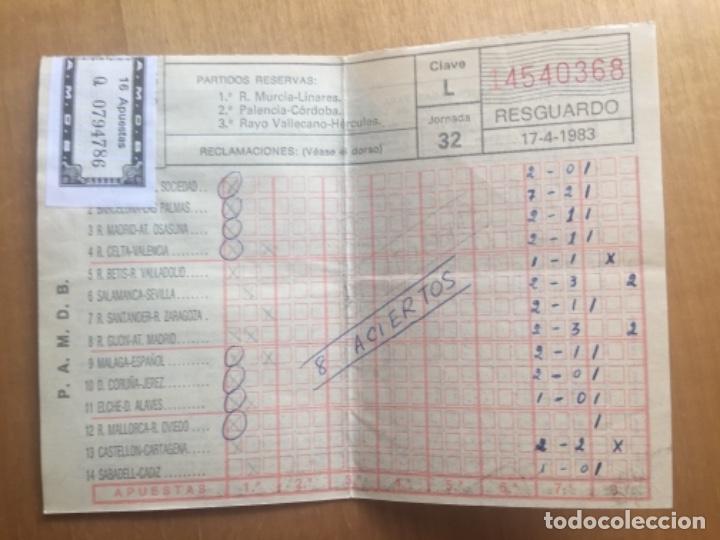 A. M. D. B.
16 Apuestas
Q 0794786
A. M. D. B.
PARTIDOS RESERVAS:
1.º R. Murcia-Linares.
2.º Palencia-Córdoba.
3.º Rayo Vallecano-Hércules.
RECLAMACIONES: (Véase el dorso)
Clave
L
Jornada
32
14540368
RESGUARDO
17-4-1983
P. A. M. D. B.
SOCIEDAD . . 2-0 1
2 BARCELONA-LAS PALMAS . . . . 7-2 1
3 R. MADRID-AT. OSASUNA . . . . 2-1 1
4 R. CELTA-VALENCIA . . . . . . . . . 2-1 1
5 R. BETIS-R. VALLADOLID . . . . 1-1 X
6 SALAMANCA-SEVILLA . . . . . . . 2-3 2
7 R. SANTANDER-R. ZARAGOZA . 2-1 1
8 R. GIJON-AT. MADRID . . . . . . . 2-3 2
9 MALAGA-ESPAÑOL . . . . . . . . . 2-1 1
10 D. CORUÑA-JEREZ . . . . . . . . . 2-0 1
11 ELCHE-D. ALAVES . . . . . . . . . 1-0 1
12 R. MALLORCA-R. OVIEDO . . . . 1
13 CASTELLON-CARTAGENA . . . . 2-2 X
14 SABADELL-CADIZ . . . . . . . . . . 1-0 1
8 ACIERTOS
APUESTAS 1.ª 2.ª 3.ª 4.ª 5.ª 6.ª 7.ª 8.ª
todocoleccion.net